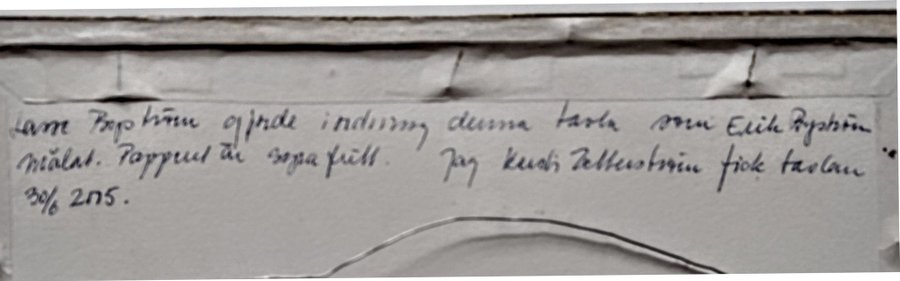 Lasse Byström gjorde inramning denna tavla som Erik Byström
målat. Papperet är syrafritt. Jag Kersti Zetterström fick tavlan
30/6 2015.